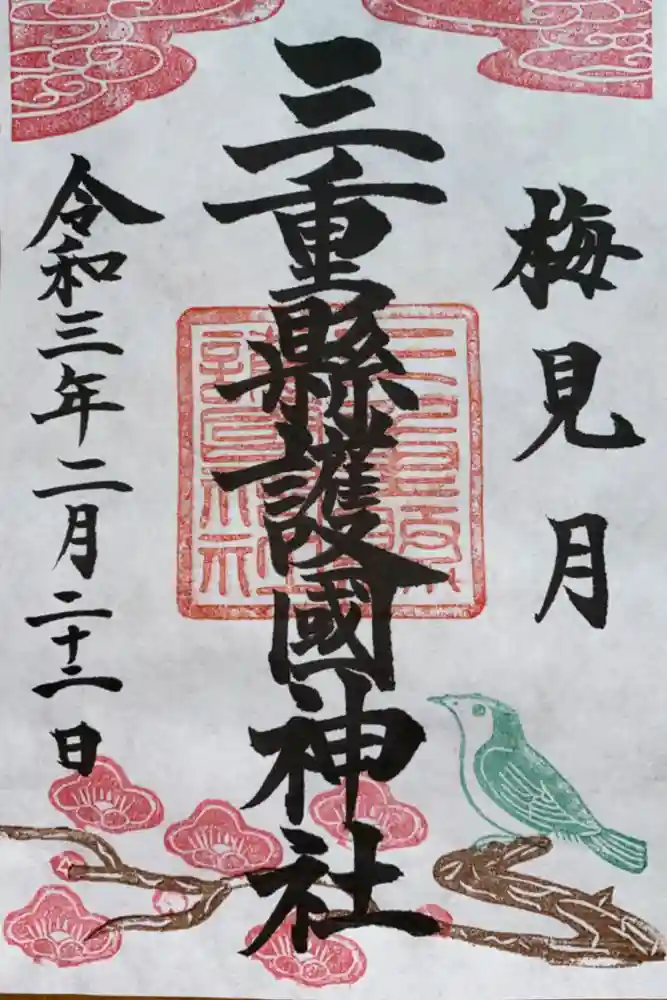 梅見月
三重縣護國神社
令和三年二月二十二日